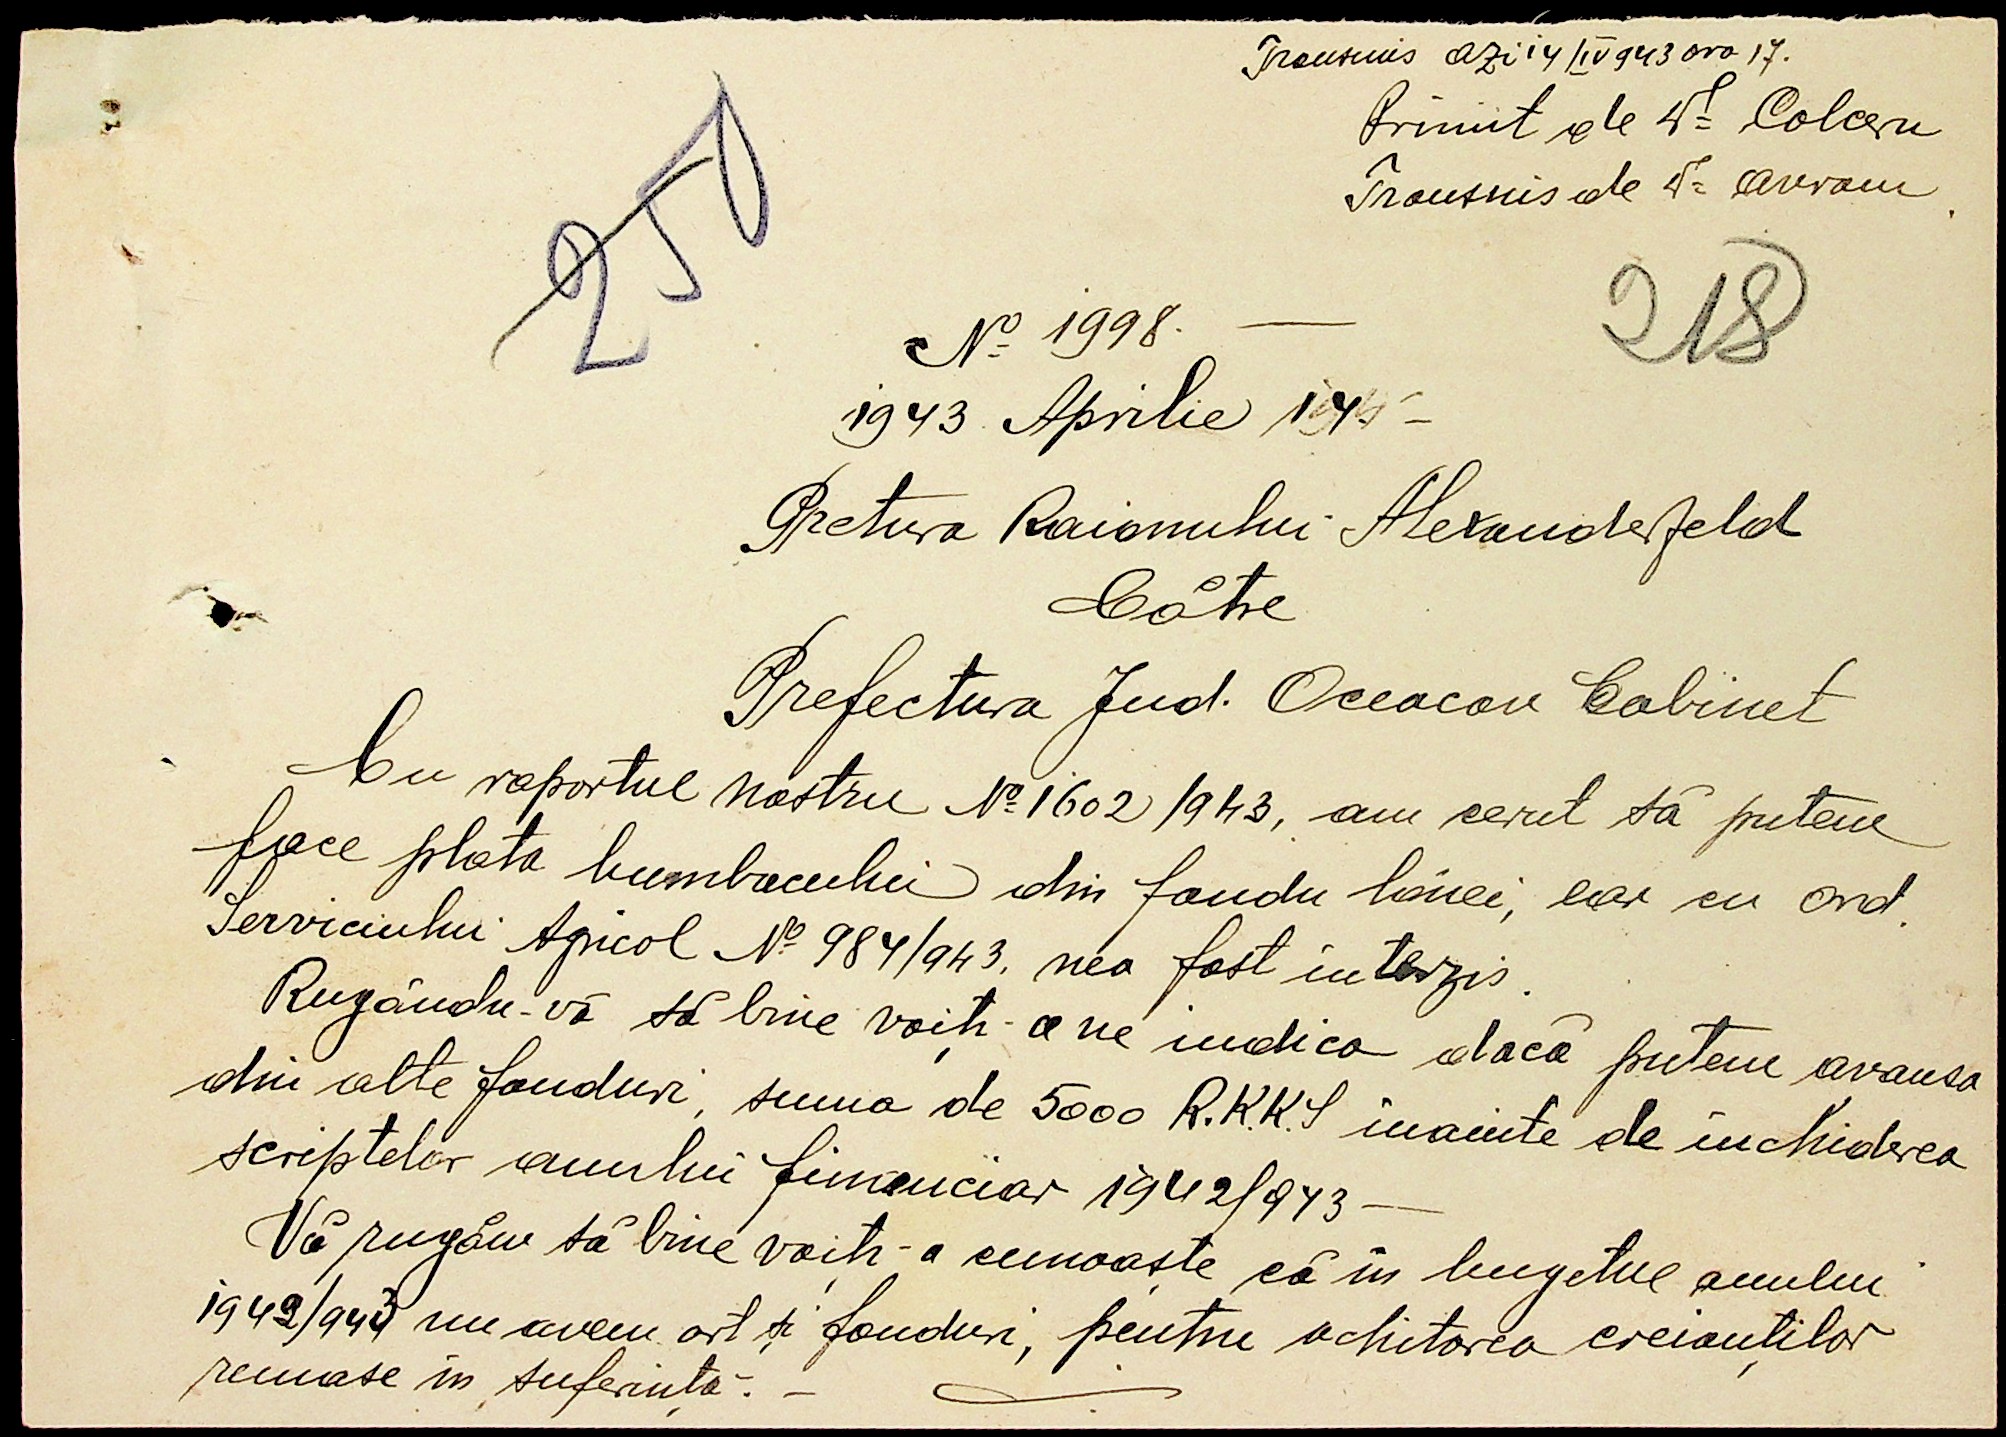 Transmis azi 14/IV 943 ora 17.
Primit de Dl Colceru
Transmis de Dl Avram
250
218
No 1998. —
1943 Aprilie 14 –
Pretura Raionului Alexanderfeld
Către
Prefectura Jud. Oceacov Cabinet
Cu raportul nostru No 1602/943, am cerut să putem
face plata bumbacului din fondu lânei, ear cu Ord.
Serviciului Agricol No 984/943. nea fost interzis.
Rugându-vă să bine voiți-a ne indica dacă putem avansa
din alte fonduri, suma de 5000 R.K.K.S înainte de închiderea
scriptelor anului financiar 1942/943 —
Vă rugăm să bine voiți-a cunoaște că în bugetul anului
1942/943 nu avem art și fonduri, pentru achitarea creianților
remase în suferință. –